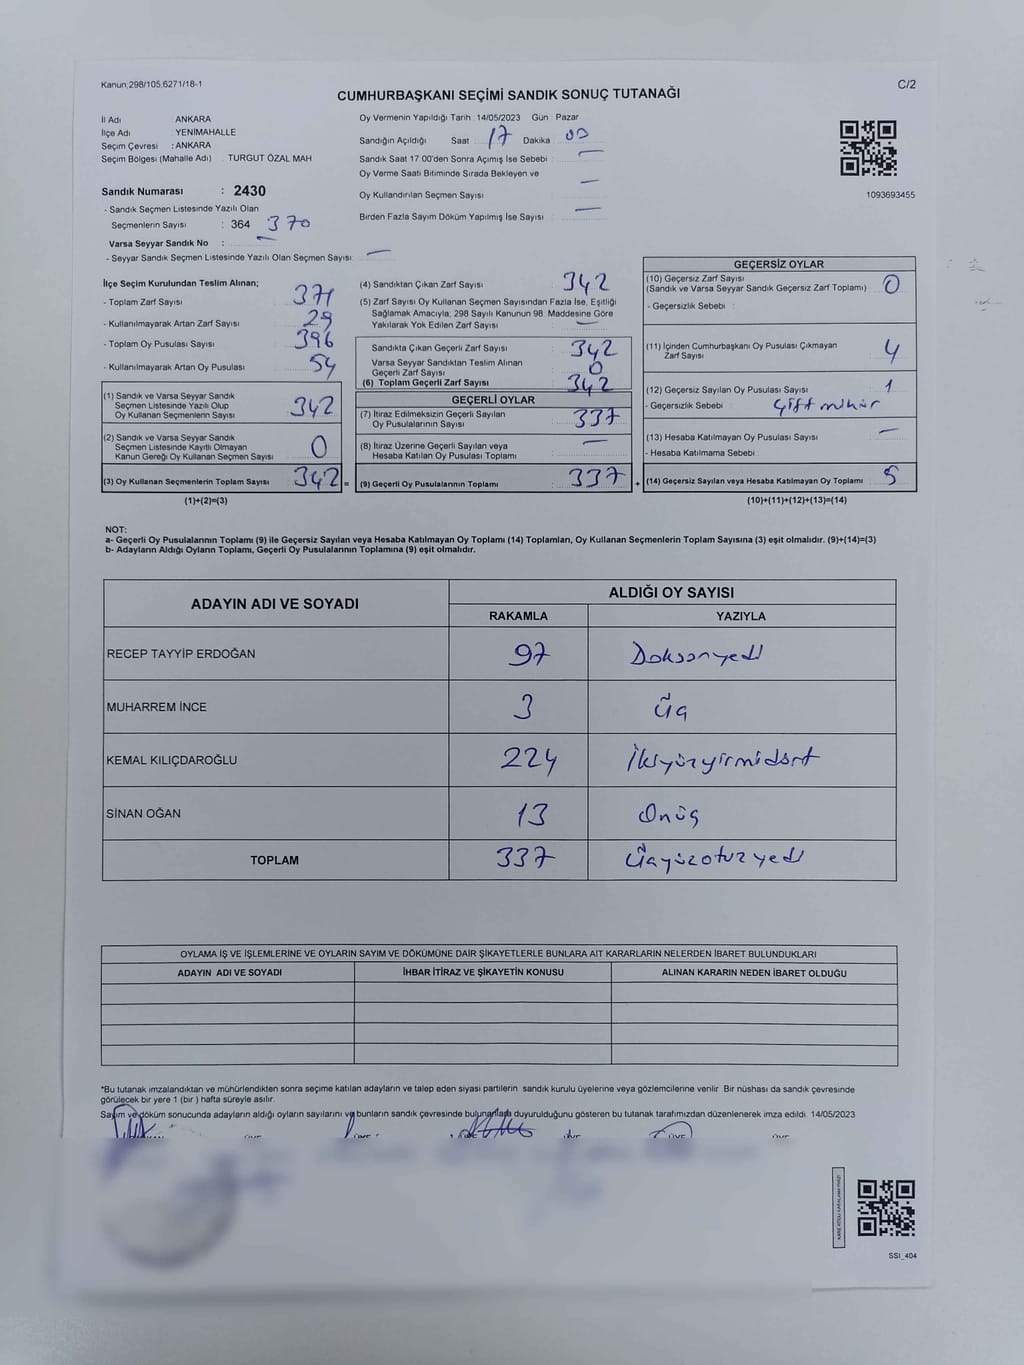 Kanun;298/105,6271/18-1
C/2
CUMHURBAŞKANI SEÇİMİ SANDIK SONUÇ TUTANAĞI
İl Adı ANKARA
İlçe Adı YENİMAHALLE
Seçim Çevresi : ANKARA
Seçim Bölgesi (Mahalle Adı) TURGUT ÖZAL MAH
Sandık Numarası : 2430
- Sandık Seçmen Listesinde Yazılı Olan
Seçmenlerin Sayısı : 364 370
Varsa Seyyar Sandık No : —
- Seyyar Sandık Seçmen Listesinde Yazılı Olan Seçmen Sayısı: —
Oy Vermenin Yapıldığı Tarih : 14/05/2023 Gün Pazar
Sandığın Açıldığı Saat 17 Dakika 00
Sandık Saat 17.00'den Sonra Açımış İse Sebebi —
Oy Verme Saati Bitiminde Sırada Bekleyen ve
Oy Kullandırılan Seçmen Sayısı —
Birden Fazla Sayım Döküm Yapılmış İse Sayısı —
1093693455
İlçe Seçim Kurulundan Teslim Alınan;
- Toplam Zarf Sayısı 371
- Kullanılmayarak Artan Zarf Sayısı 29
- Toplam Oy Pusulası Sayısı 396
- Kullanılmayarak Artan Oy Pusulası 54
(1) Sandık ve Varsa Seyyar Sandık
Seçmen Listesinde Yazılı Olup
Oy Kullanan Seçmenlerin Sayısı 342
(2) Sandık ve Varsa Seyyar Sandık
Seçmen Listesinde Kayıtlı Olmayan
Kanun Gereği Oy Kullanan Seçmen Sayısı 0
(3) Oy Kullanan Seçmenlerin Toplam Sayısı 342 =
(1)+(2)=(3)
(4) Sandıktan Çıkan Zarf Sayısı 342
(5) Zarf Sayısı Oy Kullanan Seçmen Sayısından Fazla İse, Eşitliği
Sağlamak Amacıyla, 298 Sayılı Kanunun 98. Maddesine Göre
Yakılarak Yok Edilen Zarf Sayısı —
Sandıkta Çıkan Geçerli Zarf Sayısı 342
Varsa Seyyar Sandıktan Teslim Alınan
Geçerli Zarf Sayısı 0
(6) Toplam Geçerli Zarf Sayısı 342
GEÇERLİ OYLAR
(7) İtiraz Edilmeksizin Geçerli Sayılan
Oy Pusulalarının Sayısı 337
(8) İtiraz Üzerine Geçerli Sayılan veya
Hesaba Katılan Oy Pusulası Toplamı —
(9) Geçerli Oy Pusulalarının Toplamı 337 +
GEÇERSİZ OYLAR
(10) Geçersiz Zarf Sayısı
(Sandık ve Varsa Seyyar Sandık Geçersiz Zarf Toplamı) 0
- Geçersizlik Sebebi :
(11) İçinden Cumhurbaşkanı Oy Pusulası Çıkmayan
Zarf Sayısı 4
(12) Geçersiz Sayılan Oy Pusulası Sayısı 1
- Geçersizlik Sebebi Çift mühür
(13) Hesaba Katılmayan Oy Pusulası Sayısı —
- Hesaba Katılmama Sebebi
(14) Geçersiz Sayılan veya Hesaba Katılmayan Oy Toplamı 5
(10)+(11)+(12)+(13)=(14)
NOT:
a- Geçerli Oy Pusulalarının Toplamı (9) ile Geçersiz Sayılan veya Hesaba Katılmayan Oy Toplamı (14) Toplamları, Oy Kullanan Seçmenlerin Toplam Sayısına (3) eşit olmalıdır. (9)+(14)=(3)
b- Adayların Aldığı Oyların Toplamı, Geçerli Oy Pusulalarının Toplamına (9) eşit olmalıdır.
ADAYIN ADI VE SOYADI ALDIĞI OY SAYISI
RAKAMLA YAZIYLA
RECEP TAYYİP ERDOĞAN 97 Doksanyedi
MUHARREM İNCE 3 Üç
KEMAL KILIÇDAROĞLU 224 İkiyüzyirmidört
SİNAN OĞAN 13 Onüç
TOPLAM 337 Üçyüzotuzyedi
OYLAMA İŞ VE İŞLEMLERİNE VE OYLARIN SAYIM VE DÖKÜMÜNE DAİR ŞİKAYETLERLE BUNLARA AİT KARARLARIN NELERDEN İBARET BULUNDUKLARI
ADAYIN ADI VE SOYADI İHBAR İTİRAZ VE ŞİKAYETİN KONUSU ALINAN KARARIN NEDEN İBARET OLDUĞU
*Bu tutanak imzalandıktan ve mühürlendikten sonra seçime katılan adayların ve talep eden siyasi partilerin sandık kurulu üyelerine veya gözlemcilerine verilir. Bir nüshası da sandık çevresinde
görülecek bir yere 1 (bir) hafta süreyle asılır.
Sayım ve döküm sonucunda adayların aldığı oyların sayılarını ve bunların sandık çevresinde bulunanlara duyurulduğunu gösteren bu tutanak tarafımızdan düzenlenerek imza edildi. 14/05/2023
SSI_404